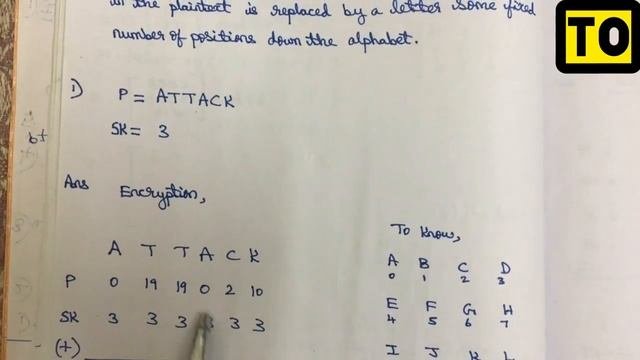 in the plaintext is replaced by a letter some fixed
number of positions down the alphabet.
TO
1) P = ATTACK
SK = 3
Ans Encryption,
A T T A C K
P 0 19 19 0 2 10
SK 3 3 3 3 3 3
(+)
To know,
A B C D
0 1 2 3
E F G H
4 5 6 7
I J K L